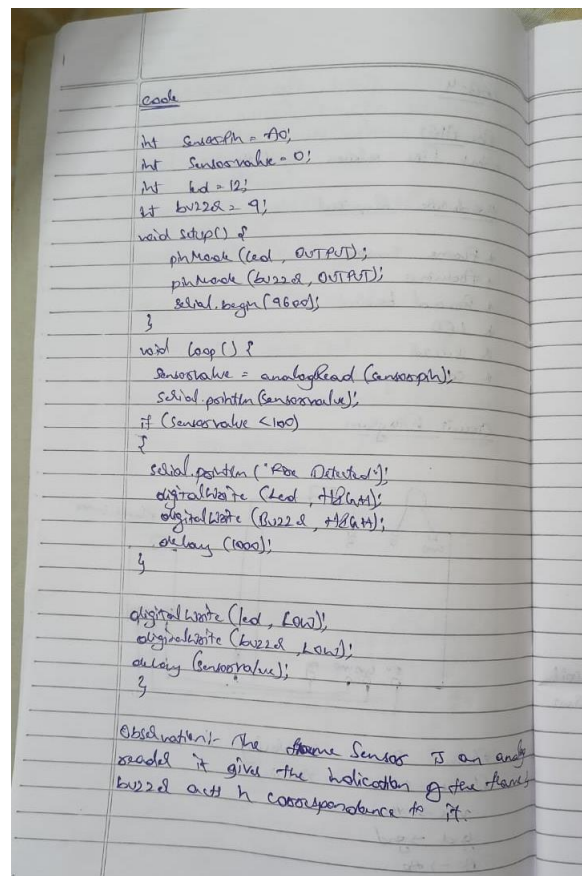 code
int sensorpin = A0;
int sensorvalue = 0;
int led = 12;
int buzzer = 9;
void setup() {
pinMode (led, OUTPUT);
pinMode (buzzer, OUTPUT);
serial.begin(9600);
}
void loop() {
sensorvalue = analogRead (sensorpin);
serial.println(sensorvalue);
if (sensorvalue <100)
{
serial.println ("Fire Detected");
digitalWrite (Led, HIGH);
digitalWrite (Buzzer, HIGH);
delay (1000);
}
digitalwrite (led, LOW);
digitalwrite (buzzer, LOW);
delay (sensorvalue);
}
Observation:- The flame Sensor is an analog
reader it gives the indication of the flame &
buzzer acts in correspondance to it.